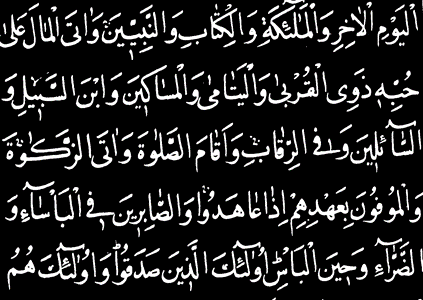 الْيَوْمِ الْاٰخِرِ وَالْمَلٰٓئِكَةِ وَالْكِتٰبِ وَالنَّبِيّٖنَ وَاٰتَى الْمَالَ عَلٰى
حُبِّهٖ ذَوِى الْقُرْبٰى وَالْيَتَامٰى وَالْمَسَاكٖينَ وَابْنَ السَّبٖيلِ وَ
السَّٓائِلٖينَ وَفِى الرِّقَابِ وَاَقَامَ الصَّلٰوةَ وَاٰتَى الزَّكٰوةَ
وَالْمُوفُونَ بِعَهْدِهِمْ اِذَا عَاهَدُوا وَالصَّابِرٖينَ فِى الْبَاْسَٓاءِ وَ
الضَّرَّٓاءِ وَحٖينَ الْبَاْسِ اُولٰٓئِكَ الَّذٖينَ صَدَقُوا وَاُولٰٓئِكَ هُمُ